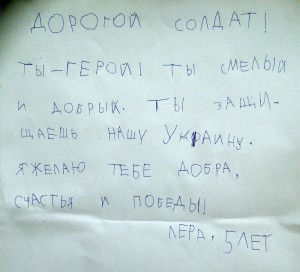 ДОРОГОЙ СОЛДАТ!
ТЫ-ГЕРОЙ! ТЫ СМЕЛЫЙ
И ДОБРЫЙ. ТЫ ЗАЩИ-
ЩАЕШЬ НАШУ УКРАИНУ.
Я ЖЕЛАЮ ТЕБЕ ДОБРА,
СЧАСТЬЯ И ПОБЕДЫ!
ЛЕРА, 5 ЛЕТ